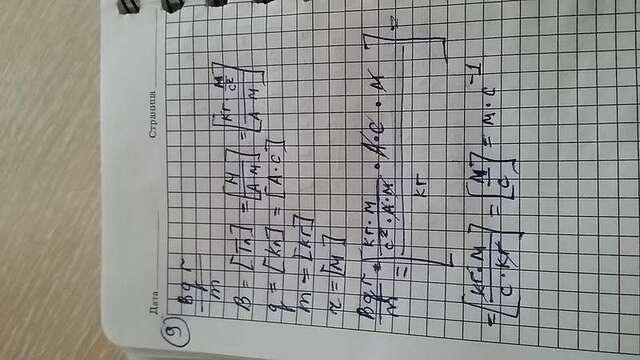 Дата Страница
9
Bqr/m
B = [Тл] = [Н/(А·м)] = [(кг·м/с²)/(А·м)]
q = [Кл] = [А·с]
m = [кг]
r = [м]
Bqr/m = [((кг·м)/(с²·А·м)·А·с·м)/кг] =
= [(кг·м)/(с·кг)] = [м/с] = м·с⁻¹